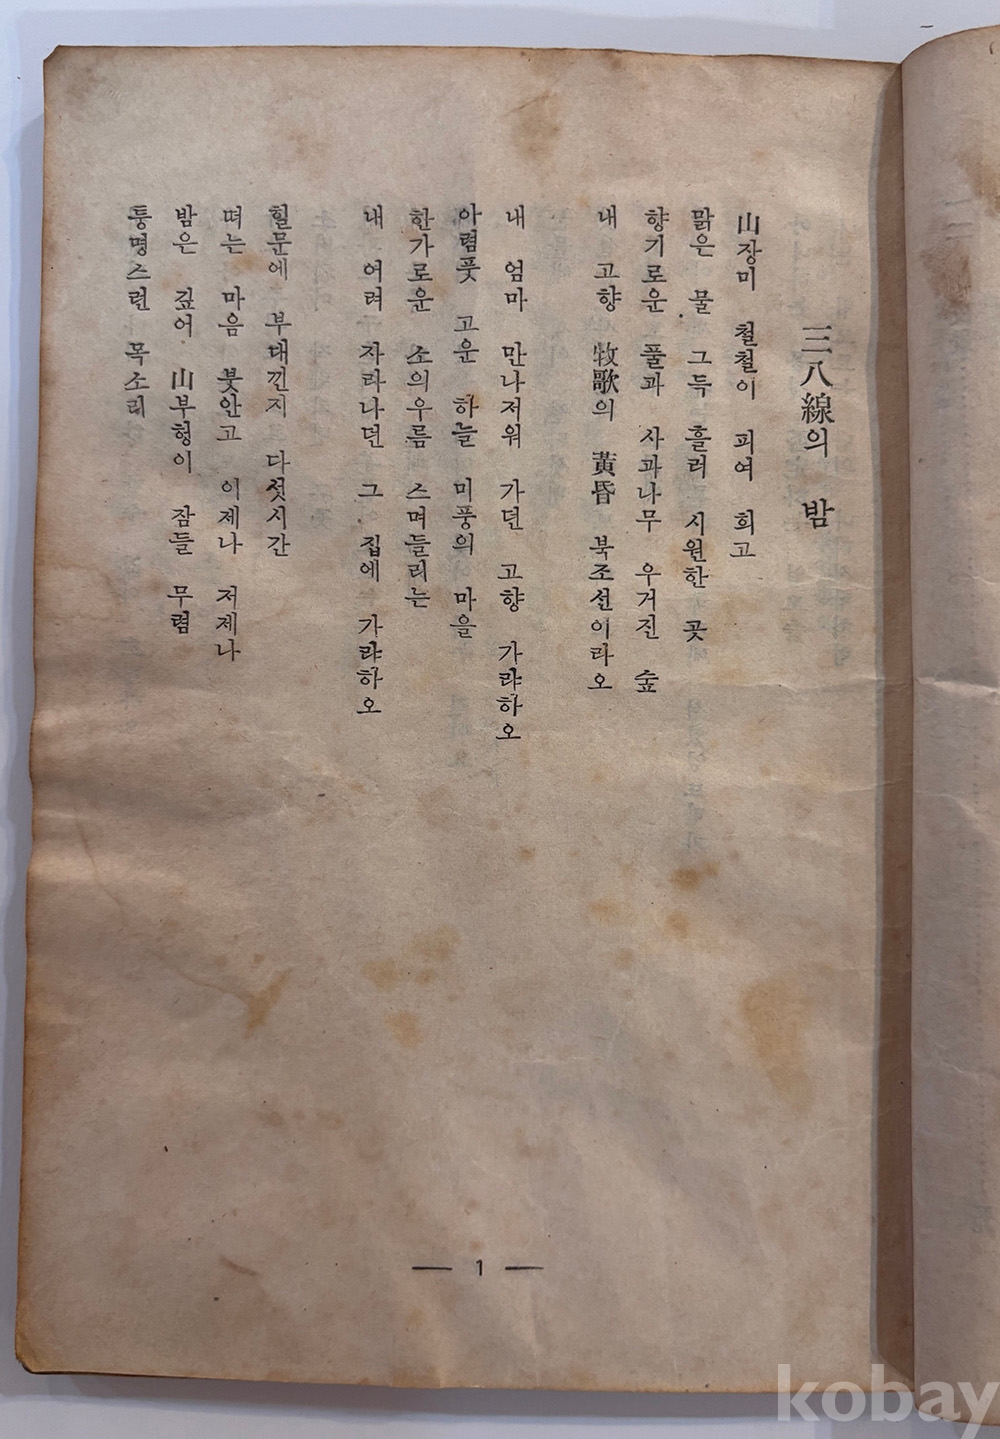 三八線의 밤
山장미 철철이 피여 희고
맑은 물 그득 흘러 시원한 곳
향기로운 풀과 사과나무 우거진 숲
내 고향 牧歌의 黃昏 북조선이라오
내 엄마 만나저워 가던 고향 가랴하오
아렴풋 고운 하늘 미풍의 마을
한가로운 소의우름 스며들리는
내 어려 자라나던 그 집에 가랴하오
힐문에 부대낀지 다섯시간
떠는 마음 붓안고 이제나 저제나
밤은 깊어 山부헝이 잠들 무렴
퉁명스런 목소리
— 1 —
kobay